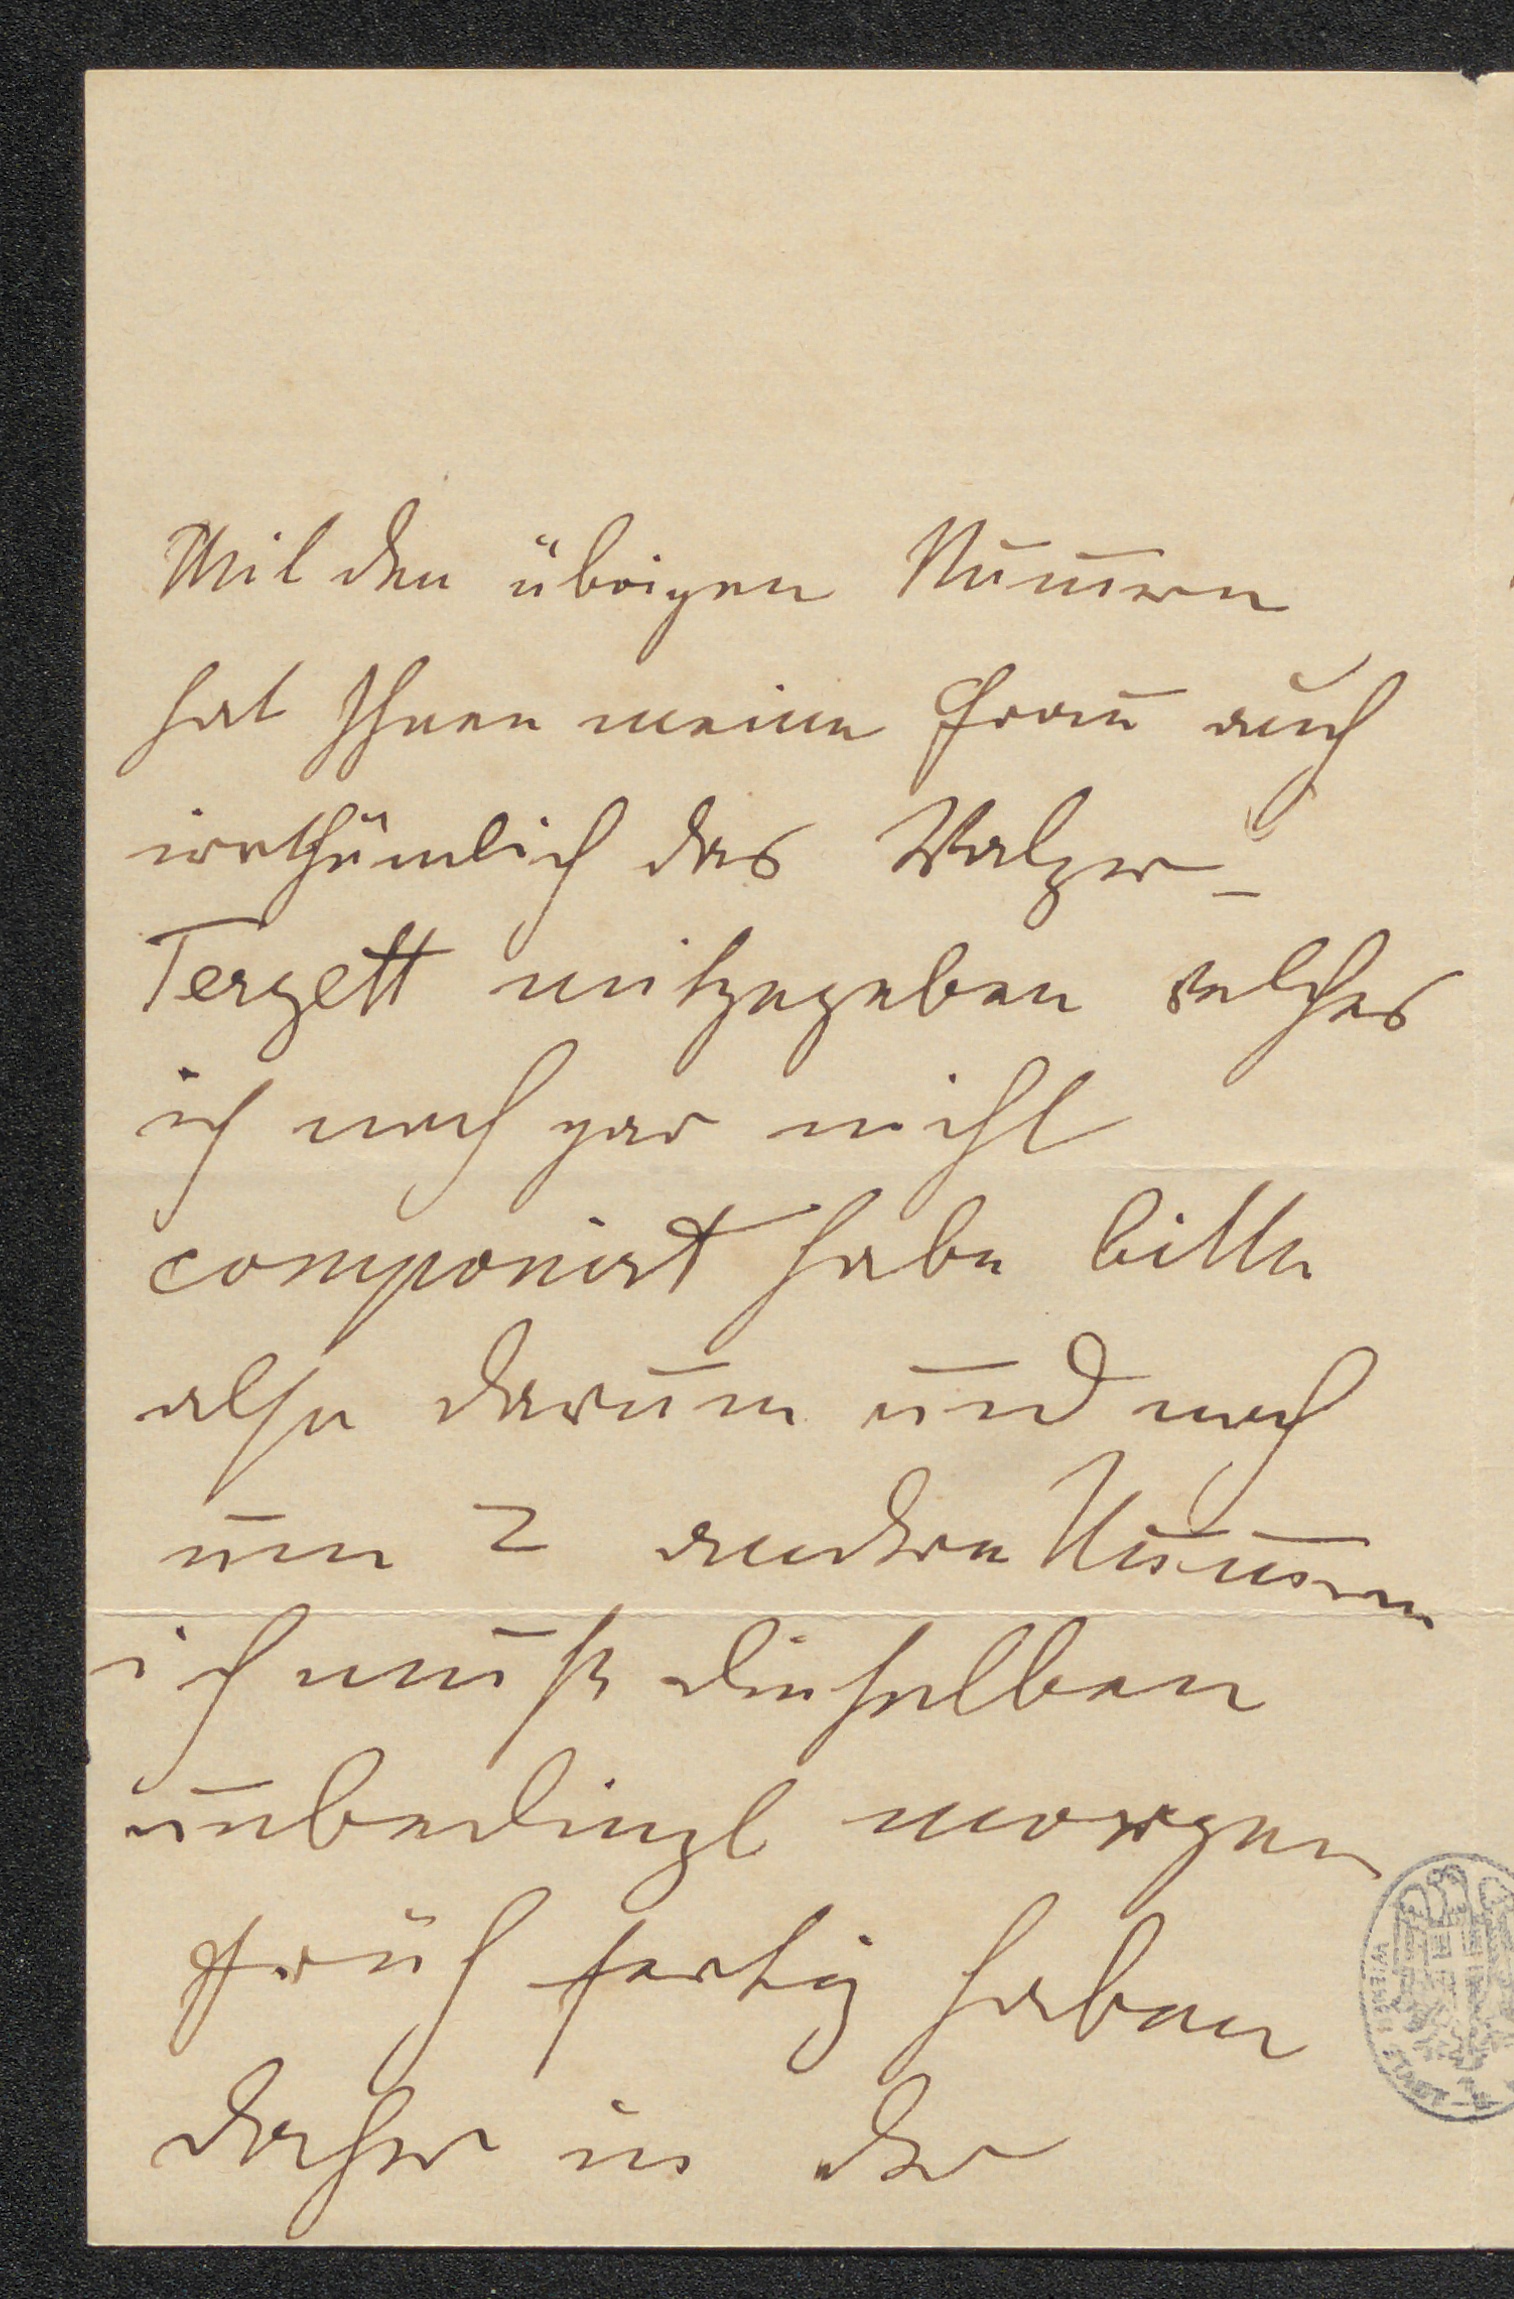 Mit den übrigen Num̄ern
hat Ihnen meine Frau auch
irrthümlich das Walzer-
Terzett mitzugeben welches
ich noch gar nicht
componirt habe bitte
also darum und noch
um 2 andere Num̄ern
ich muß dieselben
unbedingt morgen
früh fertig haben
daher in der
WIENER